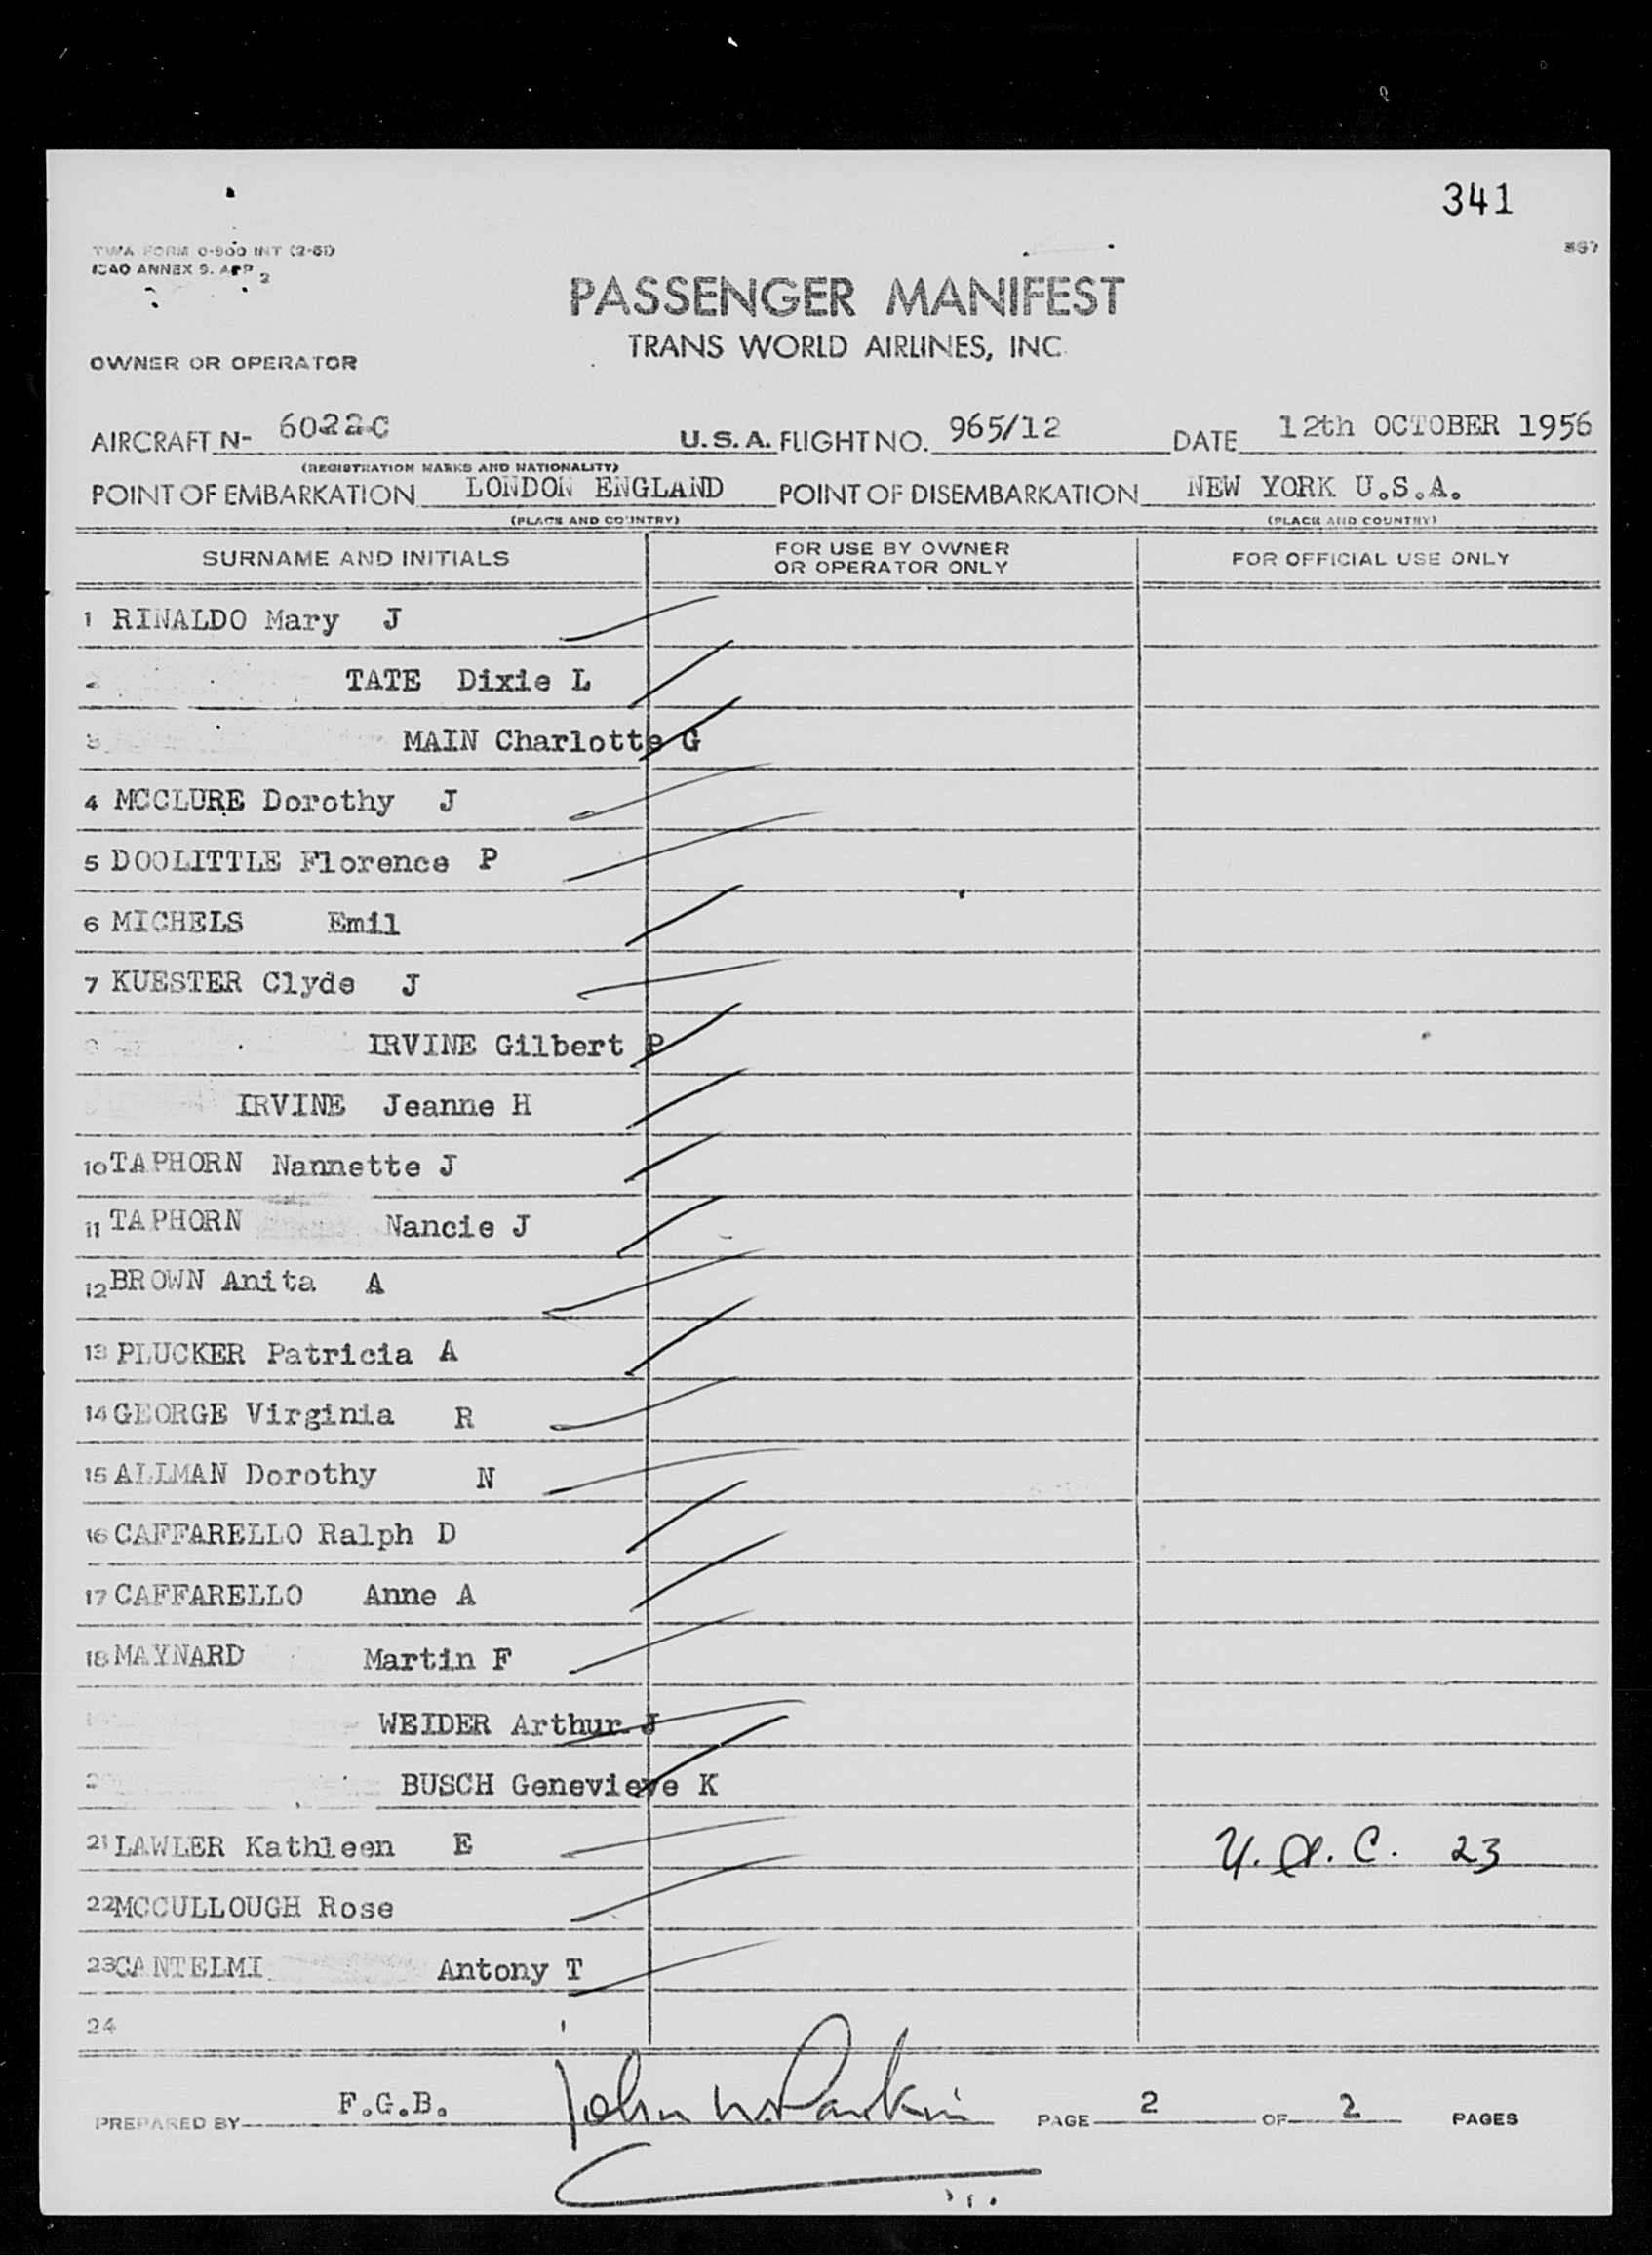 341
TWA FORM 0-900 INT (2-51)
ICAO ANNEX 9. APP 2
PASSENGER MANIFEST
TRANS WORLD AIRLINES, INC.
OWNER OR OPERATOR
AIRCRAFT N- 6022C U.S.A. FLIGHT NO. 965/12 DATE 12th OCTOBER 1956
(REGISTRATION MARKS AND NATIONALITY)
POINT OF EMBARKATION LONDON ENGLAND POINT OF DISEMBARKATION NEW YORK U.S.A.
(PLACE AND COUNTRY) (PLACE AND COUNTRY)
SURNAME AND INITIALS FOR USE BY OWNER OR OPERATOR ONLY FOR OFFICIAL USE ONLY
1 RINALDO Mary J
2 TATE Dixie L
3 MAIN Charlotte G
4 MCCLURE Dorothy J
5 DOOLITTLE Florence P
6 MICHELS Emil
7 KUESTER Clyde J
IRVINE Gilbert P
IRVINE Jeanne H
10 TAPHORN Nannette J
11 TAPHORN Nancie J
12 BROWN Anita A
13 PLUCKER Patricia A
14 GEORGE Virginia R
15 ALLMAN Dorothy N
16 CAFFARELLO Ralph D
17 CAFFARELLO Anne A
18 MAYNARD Martin F
WEIDER Arthur J
BUSCH Genevieve K
21 LAWLER Kathleen E U.S.C. 23
22 MCCULLOUGH Rose
23 CANTELMI Antony T
24
PREPARED BY F.G.B. PAGE 2 OF 2 PAGES